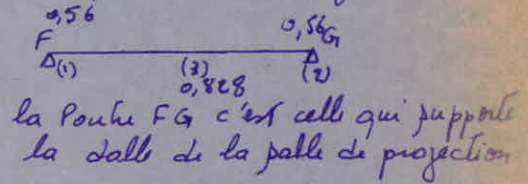 0,56 0,56
F G
(1) (3) (2)
0,828
la Poutre FG c'est celle qui supporte
la dalle de la salle de projection